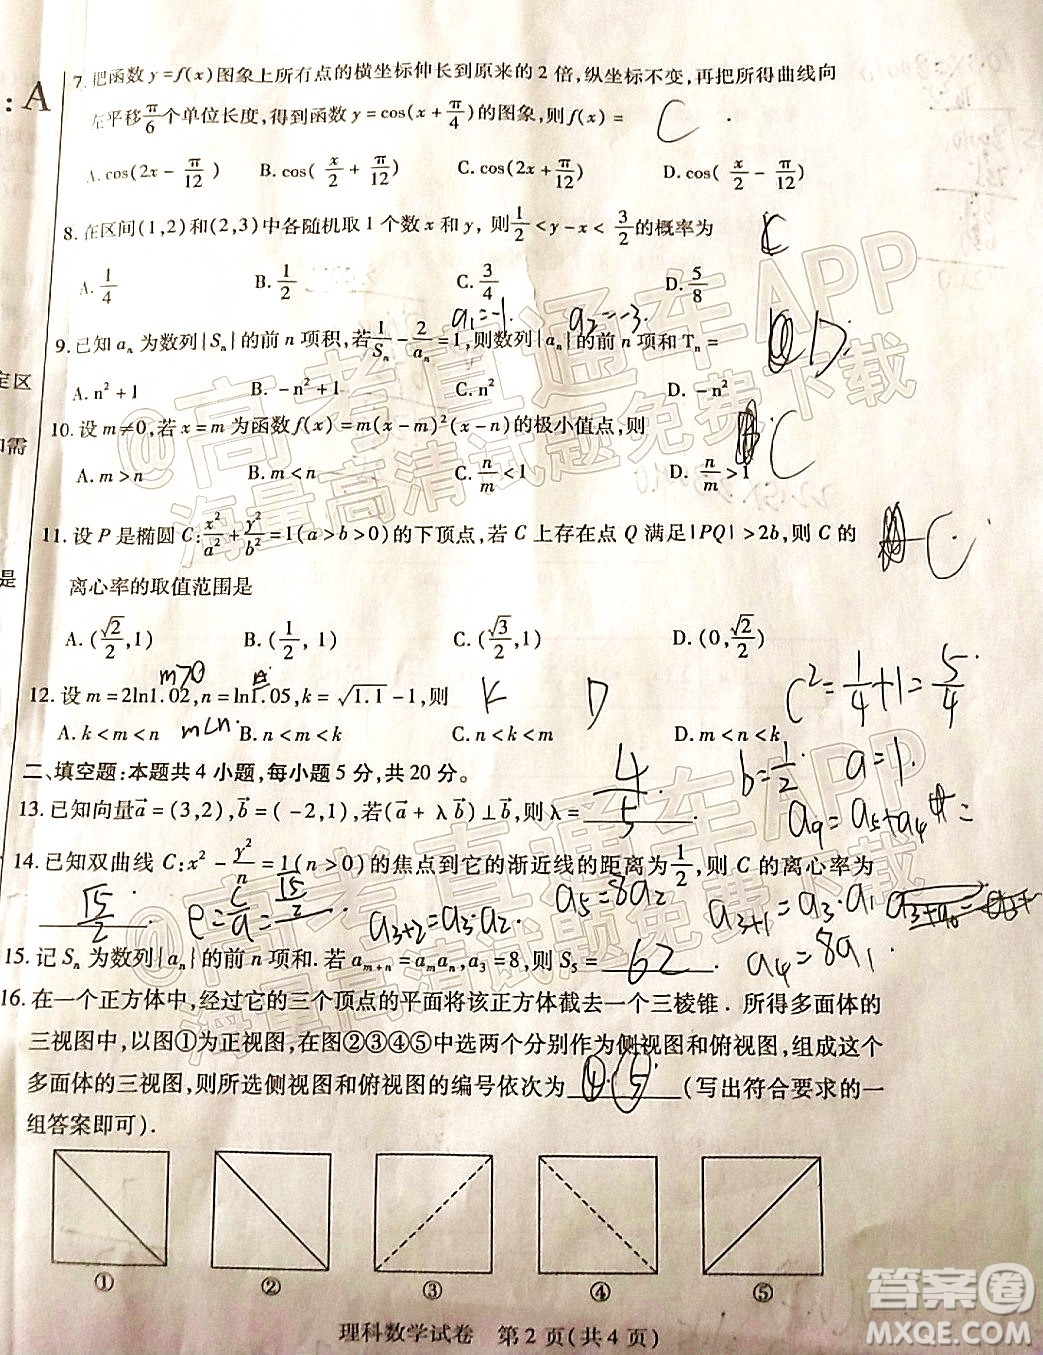 : A
7. 把函数 y=f(x)图象上所有点的横坐标伸长到原来的 2 倍,纵坐标不变,再把所得曲线向
左平移π/6个单位长度,得到函数 y=cos(x+π/4)的图象,则 f(x)= C
A. cos(2x-π/12) B. cos(x/2+π/12) C. cos(2x+π/12) D. cos(x/2-π/12)
8. 在区间(1,2)和(2,3)中各随机取 1 个数 x 和 y, 则1/2<y-x<3/2的概率为 C
A. 1/4 B. 1/2 C. 3/4 D. 5/8
a₁=-1. a₂=-3.
9. 已知 aₙ 为数列{Sₙ}的前 n 项积,若1/Sₙ-2/aₙ=1,则数列{aₙ}的前 n 项和 Tₙ= D
定区
A. n²+1 B. -n²+1 C. n² D. -n²
10. 设 m≠0,若 x=m 为函数 f(x)=m(x-m)²(x-n)的极小值点,则 C
如需
A. m>n B. m<n C. n/m<1 D. n/m>1
11. 设 P 是椭圆 C:x²/a²+y²/b²=1(a>b>0)的下顶点,若 C 上存在点 Q 满足|PQ|>2b,则 C 的 C
是
离心率的取值范围是
A. (√2/2,1) B. (1/2, 1) C. (√3/2,1) D. (0,√2/2)
m>0
12. 设 m=2ln1.02,n=ln1.05,k=√1.1-1,则 K D
c²=1/4+1=5/4
A. k<m<n m<n. B. n<m<k C. n<k<m D. m<n<k
b=1/2 a=1.
二、填空题:本题共 4 小题,每小题 5 分,共 20 分。
13. 已知向量a=(3,2),b=(-2,1),若(a+λb)⊥b,则 λ= 4/5 .
a₉=a₅+a₄
14. 已知双曲线 C:x²-y²/n=1(n>0)的焦点到它的渐近线的距离为1/2,则 C 的离心率为
√5/2 . e=c/a=√5/2 a₃₊₂=a₃·a₂ a₅=8a₂ a₃₊₁=a₃·a₁
15. 记 Sₙ 为数列{aₙ}的前 n 项和. 若 aₘ₊ₙ=aₘaₙ,a₃=8,则 S₅= 62 .
a₄=8a₁
16. 在一个正方体中,经过它的三个顶点的平面将该正方体截去一个三棱锥. 所得多面体的
三视图中,以图①为正视图,在图②③④⑤中选两个分别作为侧视图和俯视图,组成这个
多面体的三视图,则所选侧视图和俯视图的编号依次为 ④·⑤ (写出符合要求的一
组答案即可).
① ② ③ ④ ⑤
理科数学试卷 第 2 页(共 4 页)
@高考直通车APP
海量高清试题免费下载
@高考直通车APP
海量高清试题免费下载
答案圈
MXQE.COM